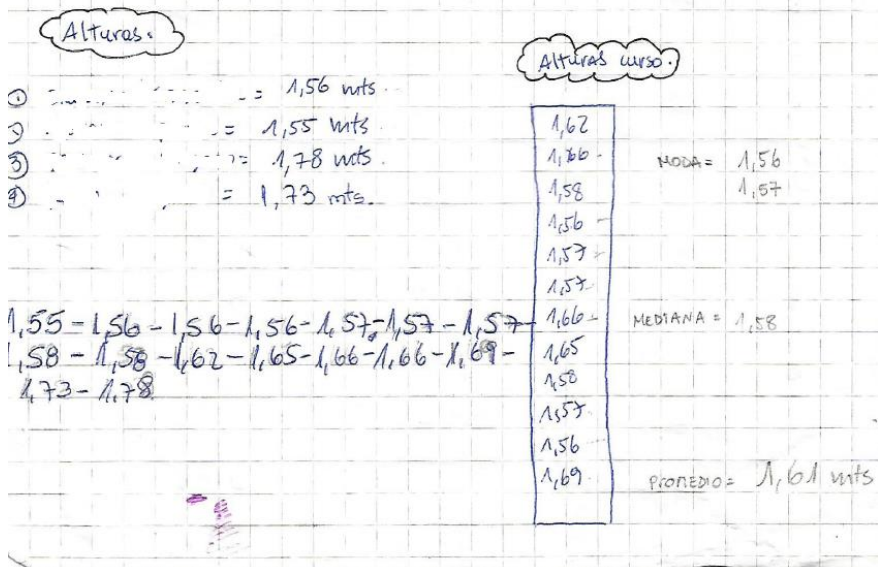 Alturas.
① = 1,56 mts
= 1,55 mts.
③ = 1,78 mts.
④ = 1,73 mts.
1,55 - 1,56 - 1,56 - 1,56 - 1,57 - 1,57 - 1,57 -
1,58 - 1,58 - 1,62 - 1,65 - 1,66 - 1,66 - 1,69 -
1,73 - 1,78
Alturas curso.
1,62
1,66
1,58
1,56
1,57
1,57
1,66
1,65
1,58
1,57
1,56
1,69
MODA = 1,56
1,57
MEDIANA = 1,58
PROMEDIO = 1,61 mts